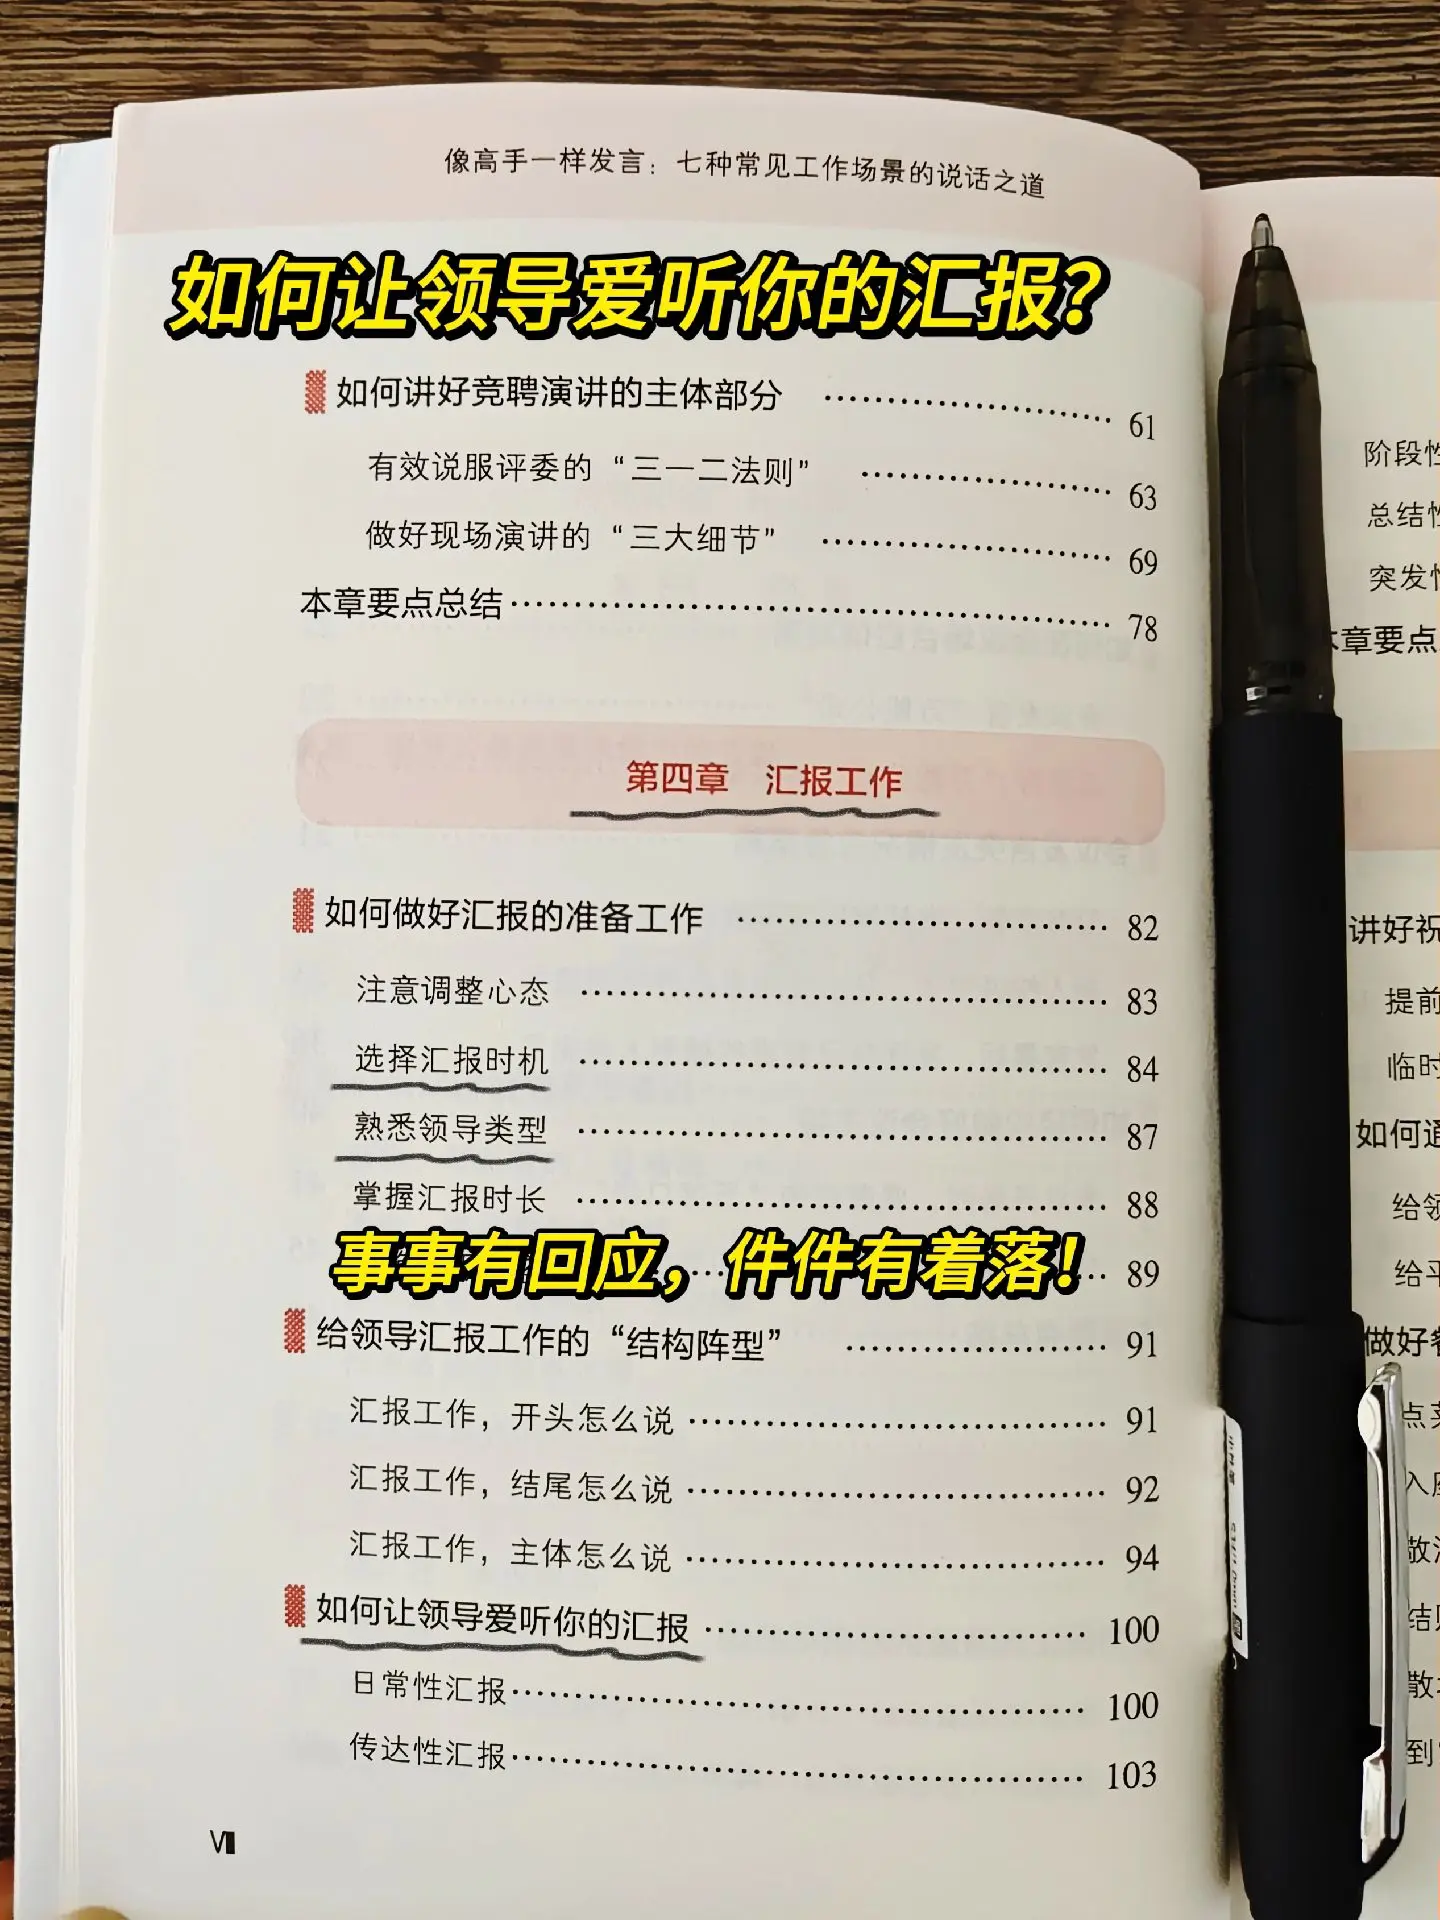 像高手一样发言：七种常见工作场景的说话之道
如何让领导爱听你的汇报?
如何讲好竞聘演讲的主体部分 61
有效说服评委的“三一二法则” 63
做好现场演讲的“三大细节” 69
本章要点总结 78
第四章 汇报工作
如何做好汇报的准备工作 82
注意调整心态 83
选择汇报时机 84
熟悉领导类型 87
掌握汇报时长 88
事事有回应，件件有着落!
89
给领导汇报工作的“结构阵型” 91
汇报工作，开头怎么说 91
汇报工作，结尾怎么说 92
汇报工作，主体怎么说 94
如何让领导爱听你的汇报 100
日常性汇报 100
传达性汇报 103
阶段性
总结性
突发性
本章要点
讲好祝
提前
临时
如何通
给领
给平
做好餐
点菜
入座
敬酒
结
散
到